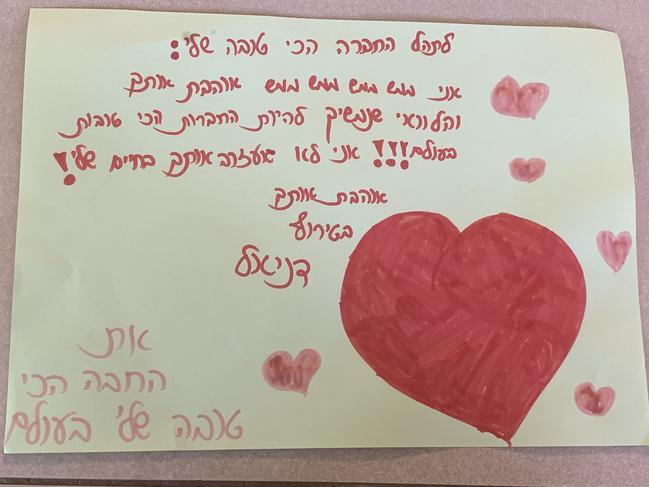 לתהל החברה הכי טובה שלי:
אני ממש ממש ממש ממש אוהבת אותך
והלוואי שנמשיך להיות החברות הכי טובות
בעולם!!! אני לא אעזוב אותך בחיים שלי!
אוהבת אותך
בטירוף
דניאל
את
החבה הכי
טובה שלי בעולם